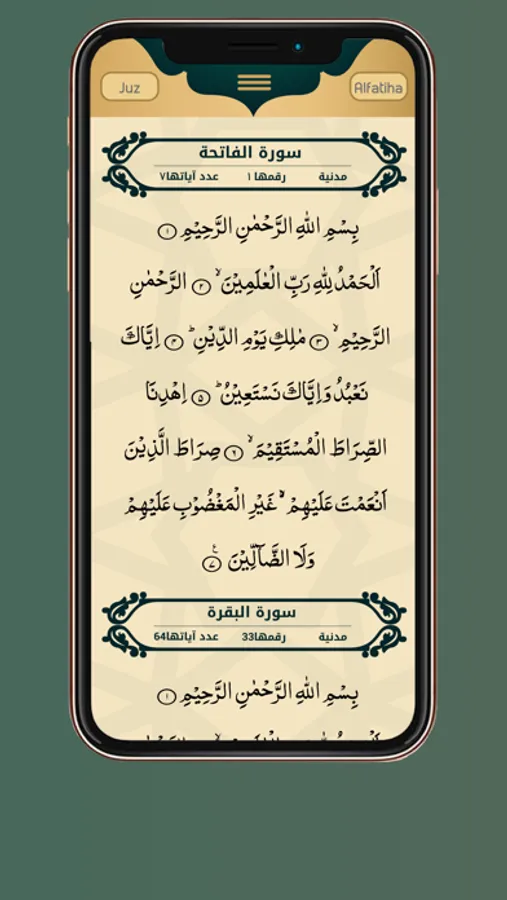 Juz
Alfatiha
سورة الفاتحة
مدنية رقمها ١ عدد آياتها٧
بِسْمِ اللهِ الرَّحْمٰنِ الرَّحِيْمِ ١
اَلْحَمْدُ لِلهِ رَبِّ الْعٰلَمِيْنَ ۙ ٢ الرَّحْمٰنِ
الرَّحِيْمِ ۙ ٣ مٰلِكِ يَوْمِ الدِّيْنِ ؕ ٤ اِيَّاكَ
نَعْبُدُ وَاِيَّاكَ نَسْتَعِيْنُ ؕ ٥ اِهْدِنَا
الصِّرَاطَ الْمُسْتَقِيْمَ ۙ ٦ صِرَاطَ الَّذِيْنَ
اَنْعَمْتَ عَلَيْهِمْ ۙ غَيْرِ الْمَغْضُوْبِ عَلَيْهِمْ
وَلَا الضَّآلِّيْنَ ٧
سورة البقرة
مدنية رقمها33 عدد آياتها64
بِسْمِ اللهِ الرَّحْمٰنِ الرَّحِيْمِ ١